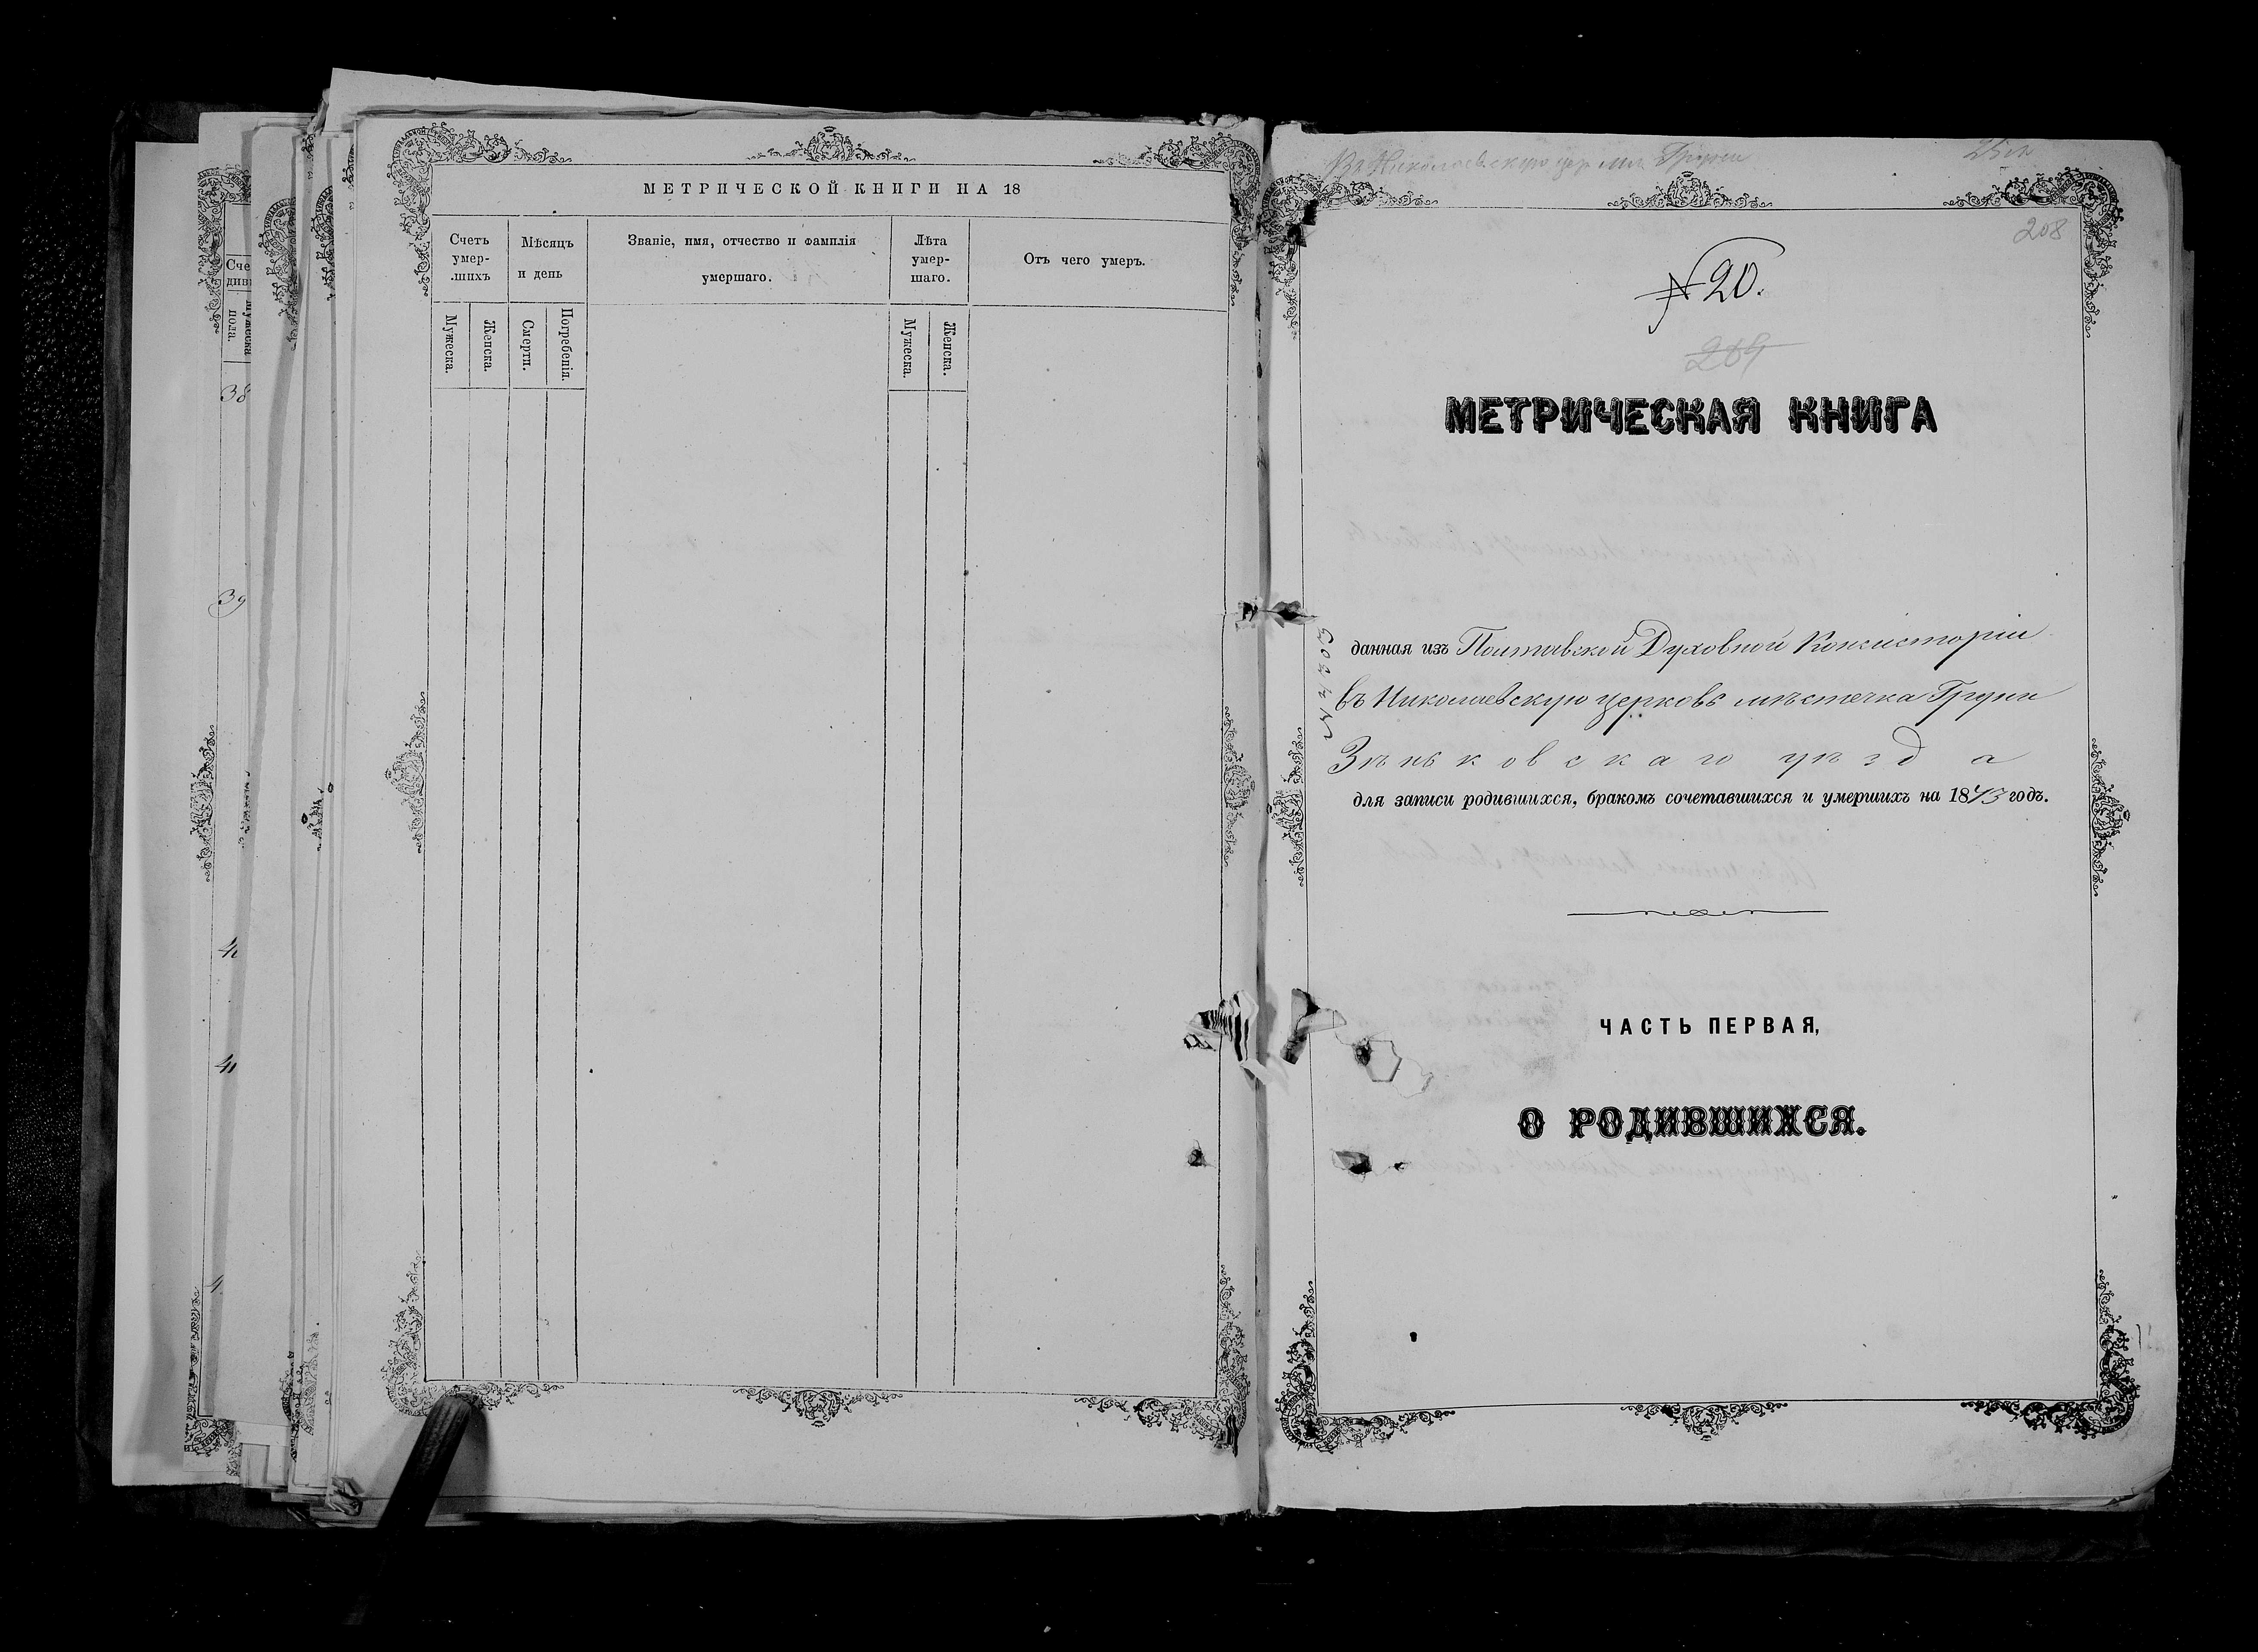 Сче
дивш
Мужеска
пола.
38
39
40
41
4
МЕТРИЧЕСКОЙ КНИГИ НА 18
Счетъ
умер-
шихъ
Мѣсяцъ
и день
Званіе, имя, отчество и фамилія
умершаго.
Лѣта
умер-
шаго.
Отъ чего умеръ.
Мужеска.
Женска.
Смерти.
Погребенія.
Мужеска.
Женска.
Въ Николаевскую цер. мѣст. Груни
208
№ 20.
209
МЕТРИЧЕСКАЯ КНИГА
данная изъ Полтавской Духовной Консисторіи
въ Николаевскую церковь мѣстечка Груни
Зѣньковскаго уѣзда
для записи родившихся, бракомъ сочетавшихся и умершихъ на 1873 годъ.
ЧАСТЬ ПЕРВАЯ,
О РОДИВШИХСЯ.